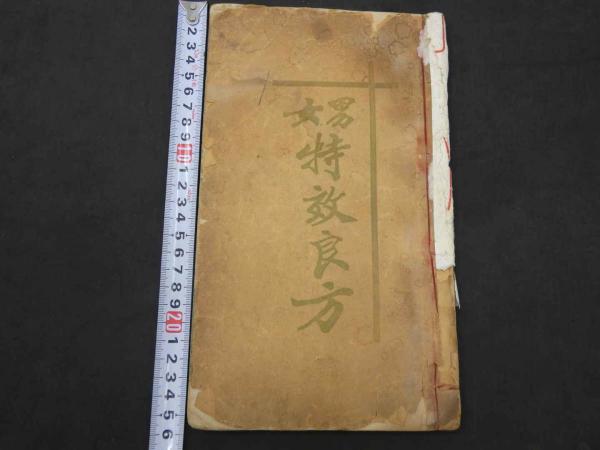 男女
特效良方
2 3 4 5 6 7 8 9 10 1 2 3 4 5 6 7 8 9 20 1 2 3 4 5 6